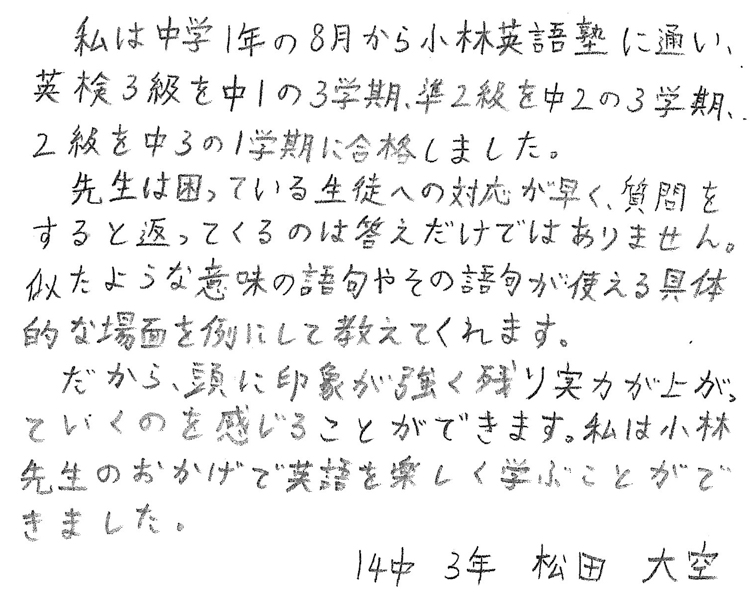 私は中学1年の8月から小林英語塾に通い、
英検3級を中1の3学期、準2級を中2の3学期、
2級を中3の1学期に合格しました。
先生は困っている生徒への対応が早く、質問を
すると返ってくるのは答えだけではありません。
似たような意味の語句やその語句が使える具体
的な場面を例にして教えてくれます。
だから、頭に印象が強く残り実力が上がっ
ていくのを感じることができます。私は小林
先生のおかげで英語を楽しく学ぶことがで
きました。
14中 3年 松田 大空